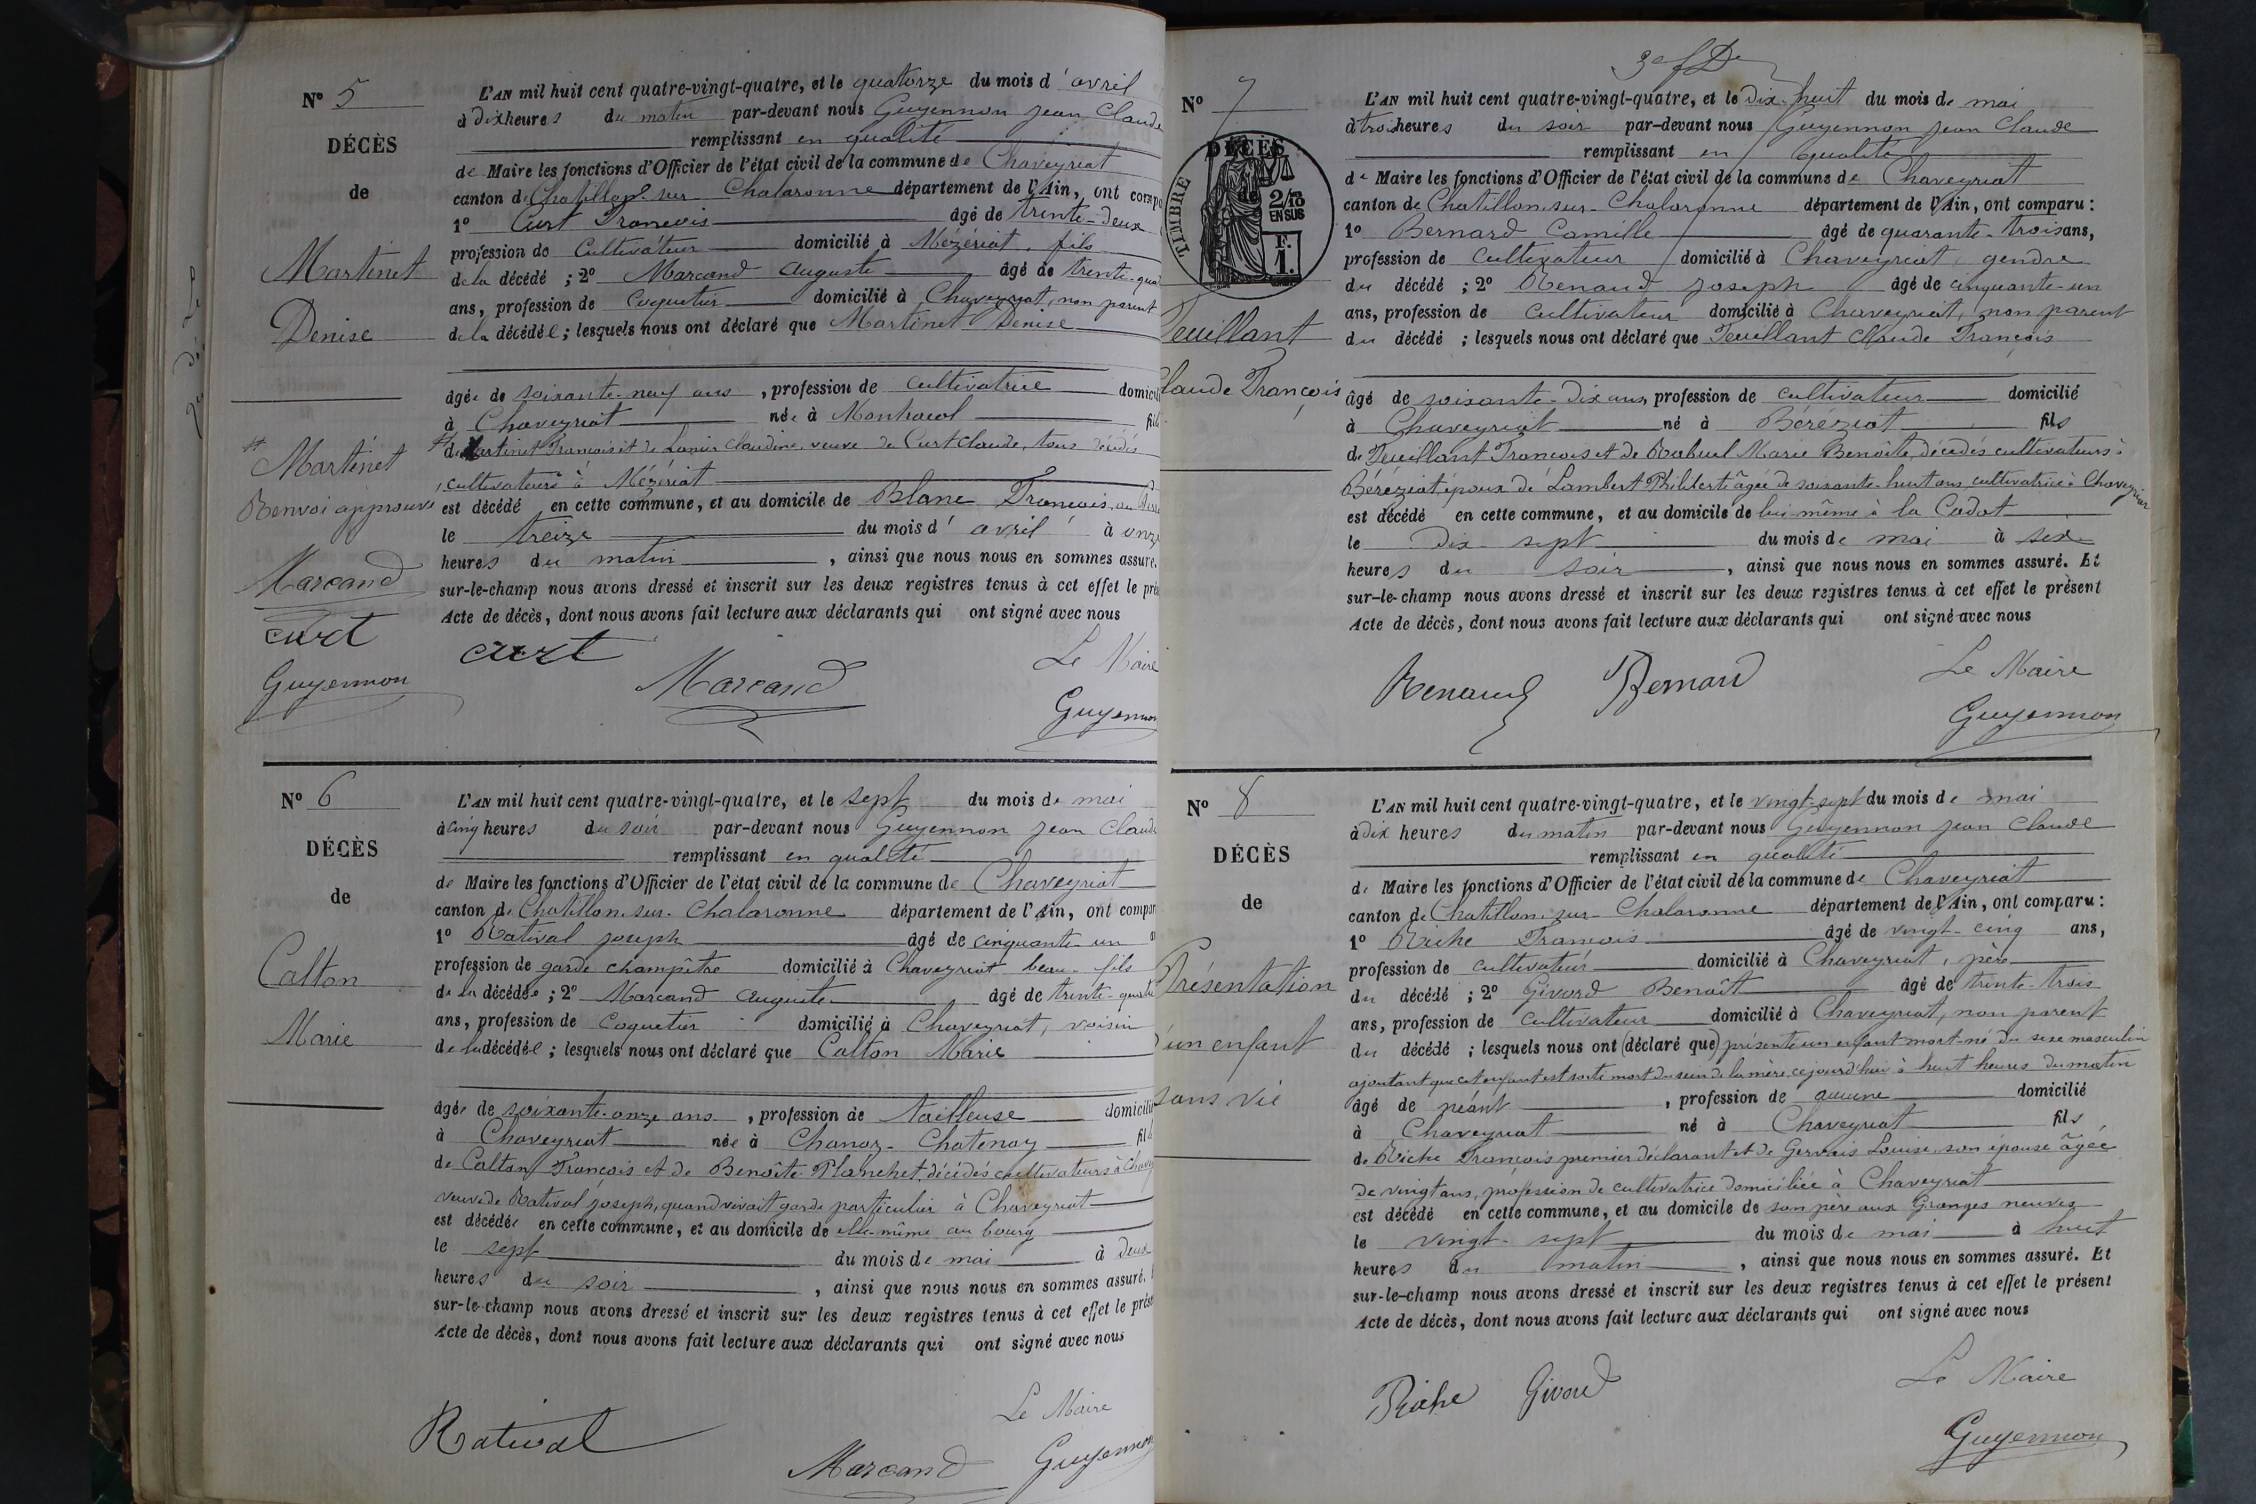 Nº 5
DÉCÈS
de
Martinet
Denise
Martinet
Renvoi approuvé
Marcand
Curt
Guyennon
L'AN mil huit cent quatre-vingt-quatre, et le quatorze du mois d'avril
à dix heures du matin par-devant nous Guyennon Jean Claude
remplissant en qualité
de Maire les fonctions d'Officier de l'état civil de la commune de Chaveyriat
canton de Chatillon-sur-Chalaronne département de l'Ain, ont comp
1º Curt Francois âgé de trente-deux
profession de Cultivateur domicilié à Mézériat, fils
de la décédé ; 2º Marcand Auguste âgé de trente-qua
ans, profession de Coquetier domicilié à Chaveyriat, non parent
de la décédée ; lesquels nous ont déclaré que Martinet Denise
âgée de soixante-neuf ans, profession de cultivatrice domici
à Chaveyriat née à Monhacol fil
de Martinet Francois et de Lanir Claudine, veuve de Curt Claude, tous décédés
cultivateurs à Mézériat
est décédé en cette commune, et au domicile de Blanc Francois, au
le treize du mois d'avril à onze
heures du matin, ainsi que nous nous en sommes assuré.
sur-le-champ nous avons dressé et inscrit sur les deux registres tenus à cet effet le pré
Acte de décès, dont nous avons fait lecture aux déclarants qui ont signé avec nous
Curt Marcand Le Maire
Guyennon
Nº 6
DÉCÈS
de
Calton
Marie
L'AN mil huit cent quatre-vingt-quatre, et le sept du mois de mai
à cinq heures du soir par-devant nous Guyennon Jean Claude
remplissant en qualité
de Maire les fonctions d'Officier de l'état civil de la commune de Chaveyriat
canton de Chatillon-sur-Chalaronne département de l'Ain, ont compar
1º Rativat Joseph âgé de cinquante-un
profession de garde champêtre domicilié à Chaveyriat beau-fils
de la décédée ; 2º Marcand Auguste âgé de trente-quatre
ans, profession de coquetier domicilié à Chaveyriat, voisin
de la décédée ; lesquels nous ont déclaré que Calton Marie
âgée de soixante-onze ans, profession de tailleuse domicili
à Chaveyriat née à Chanoz-Chatenay fil
de Calton Francois et de Benoîte Planchet, décédés cultivateurs à Chavey
veuve de Rativat Joseph, quand vivait garde particulier à Chaveyriat
est décédée en cette commune, et au domicile de elle-même au bourg
le sept du mois de mai à deux
heures du soir, ainsi que nous nous en sommes assuré.
sur-le-champ nous avons dressé et inscrit sur les deux registres tenus à cet effet le prése
Acte de décès, dont nous avons fait lecture aux déclarants qui ont signé avec nous
Le Maire
Rativat Marcand Guyennon
Nº 7
DÉCÈS
TIMBRE
2/10
EN SUS
F.
1.
Teuillant
Claude François
L'AN mil huit cent quatre-vingt-quatre, et le dix-huit du mois de mai
à trois heures du soir par-devant nous Guyennon Jean Claude
remplissant en qualité
de Maire les fonctions d'Officier de l'état civil de la commune de Chaveyriat
canton de Chatillon-sur-Chalaronne département de l'Ain, ont comparu :
1º Bernard Camille âgé de quarante-trois ans,
profession de Cultivateur domicilié à Chaveyriat, gendre
du décédé ; 2º Renaud Joseph âgé de cinquante-un
ans, profession de cultivateur domicilié à Chaveyriat, non parent
du décédé ; lesquels nous ont déclaré que Teuillant Claude François
âgé de soixante-dix ans, profession de cultivateur domicilié
à Chaveyriat né à Béréziat fils
de Teuillant Francois et de Rabuel Marie Benoîte, décédés cultivateurs à
Béréziat, époux de Lambert Philiberte âgée de soixante-huit ans, cultivatrice à Chaveyriat
est décédé en cette commune, et au domicile de lui-même à la Cadot
le Dix-sept du mois de mai à six
heures du soir, ainsi que nous nous en sommes assuré. Et
sur-le-champ nous avons dressé et inscrit sur les deux registres tenus à cet effet le présent
Acte de décès, dont nous avons fait lecture aux déclarants qui ont signé avec nous
Renaud Bernard Le Maire
Guyennon
Nº 8
DÉCÈS
de
Présentation
d'un enfant
sans vie
L'AN mil huit cent quatre-vingt-quatre, et le vingt-sept du mois de mai
à dix heures du matin par-devant nous Guyennon Jean Claude
remplissant en qualité
de Maire les fonctions d'Officier de l'état civil de la commune de Chaveyriat
canton de Chatillon-sur-Chalaronne département de l'Ain, ont comparu :
1º Riche Francois âgé de vingt-cinq ans,
profession de cultivateur domicilié à Chaveyriat, père
du décédé ; 2º Givord Benoît âgé de trente-trois
ans, profession de cultivateur domicilié à Chaveyriat, non parent
du décédé ; lesquels nous ont (déclaré que) présenté un enfant mort-né du sexe masculin
ajoutant que cet enfant est sorti mort du sein de la mère cejourd'hui à huit heures du matin
âgé de néant, profession de aucune domicilié
à Chaveyriat né à Chaveyriat fils
de Riche François premier déclarant et de Gervais Louise, son épouse âgée
de vingt ans, profession de cultivatrice domiciliée à Chaveyriat
est décédé en cette commune, et au domicile de son père aux Granges neuves
le vingt-sept du mois de mai à huit
heures du matin, ainsi que nous nous en sommes assuré. Et
sur-le-champ nous avons dressé et inscrit sur les deux registres tenus à cet effet le présent
Acte de décès, dont nous avons fait lecture aux déclarants qui ont signé avec nous
Riche Givord Le Maire
Guyennon